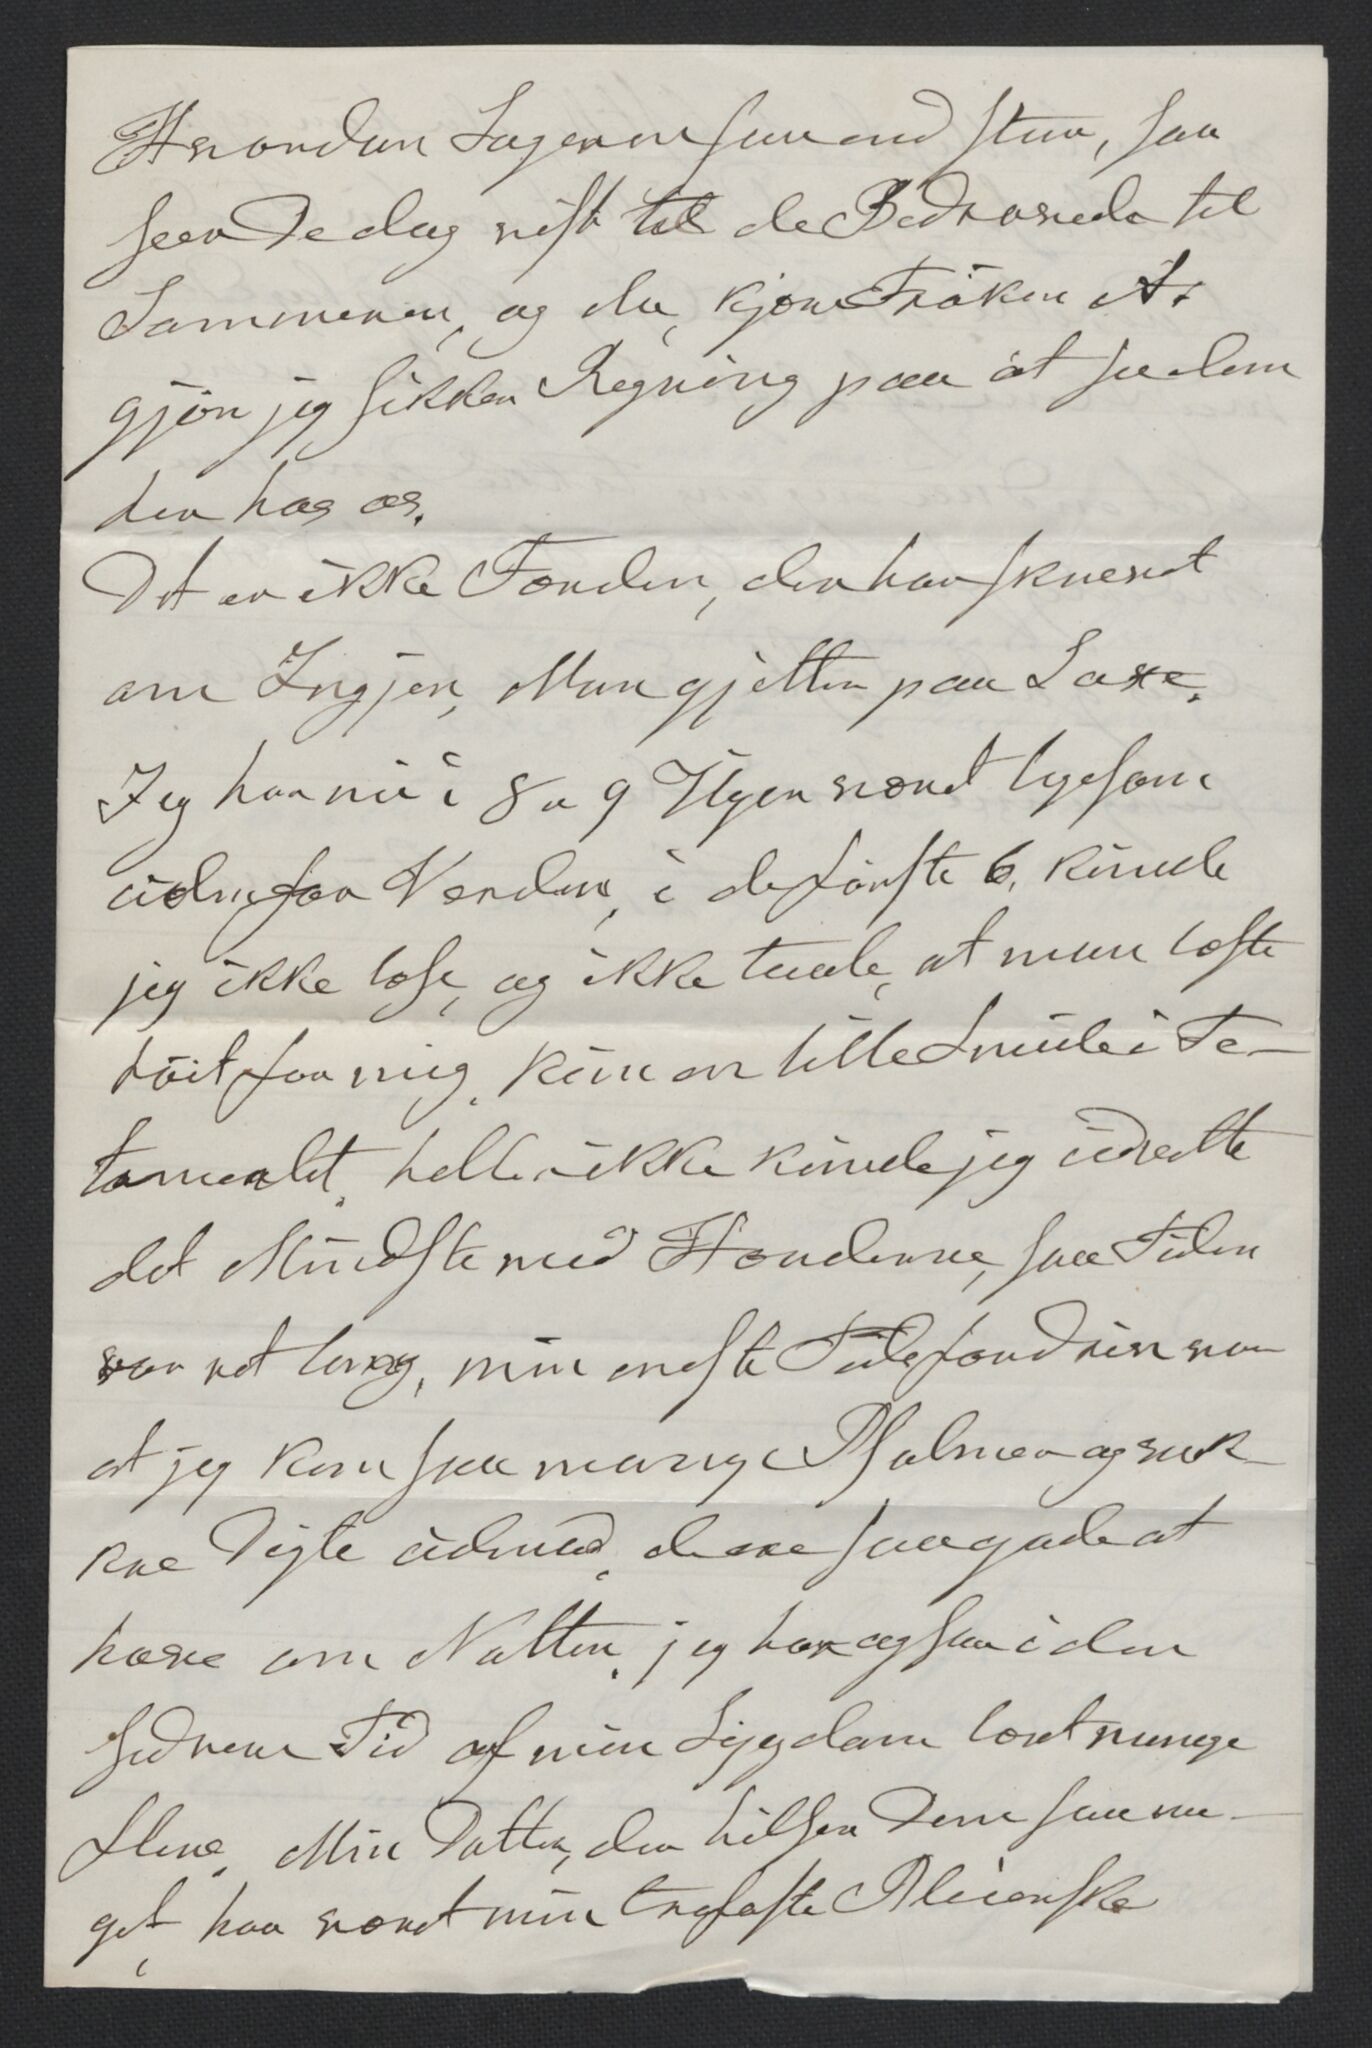 Hvordan Sagerne saa end staa, saa
seer De dog vist til de Bedrøvede til
Sommeren, og da, kjøre Frøken A.
gjør jeg sikker Regning paa at see dem
her hos os.
Det er ikke Fonden, der har skrevet
om Ingjer, Man gjetter paa Saxe.
Jeg har nu i 8 a 9 Uger været ligesom
udenfor Verden, i de første 6, kunde
jeg ikke læse, og ikke taale, at man læste
høit for mig, kun en lille Smule i Te-
tamentet, heller ikke kunde jeg udrette
det Mindste med Hænderne, saa Tiden
var ret lang, min eneste Tidsfordriv var
at jeg kan saa mange Psalmer og smuk-
ke Digte udenad, de ere saa gode at
have om Natten, jeg har ogsaa i den
sednere Tid af min Sygdom lært mange
flere, Min Datter, der hilser Dem saa me-
get, har været min trofaste Pleierske